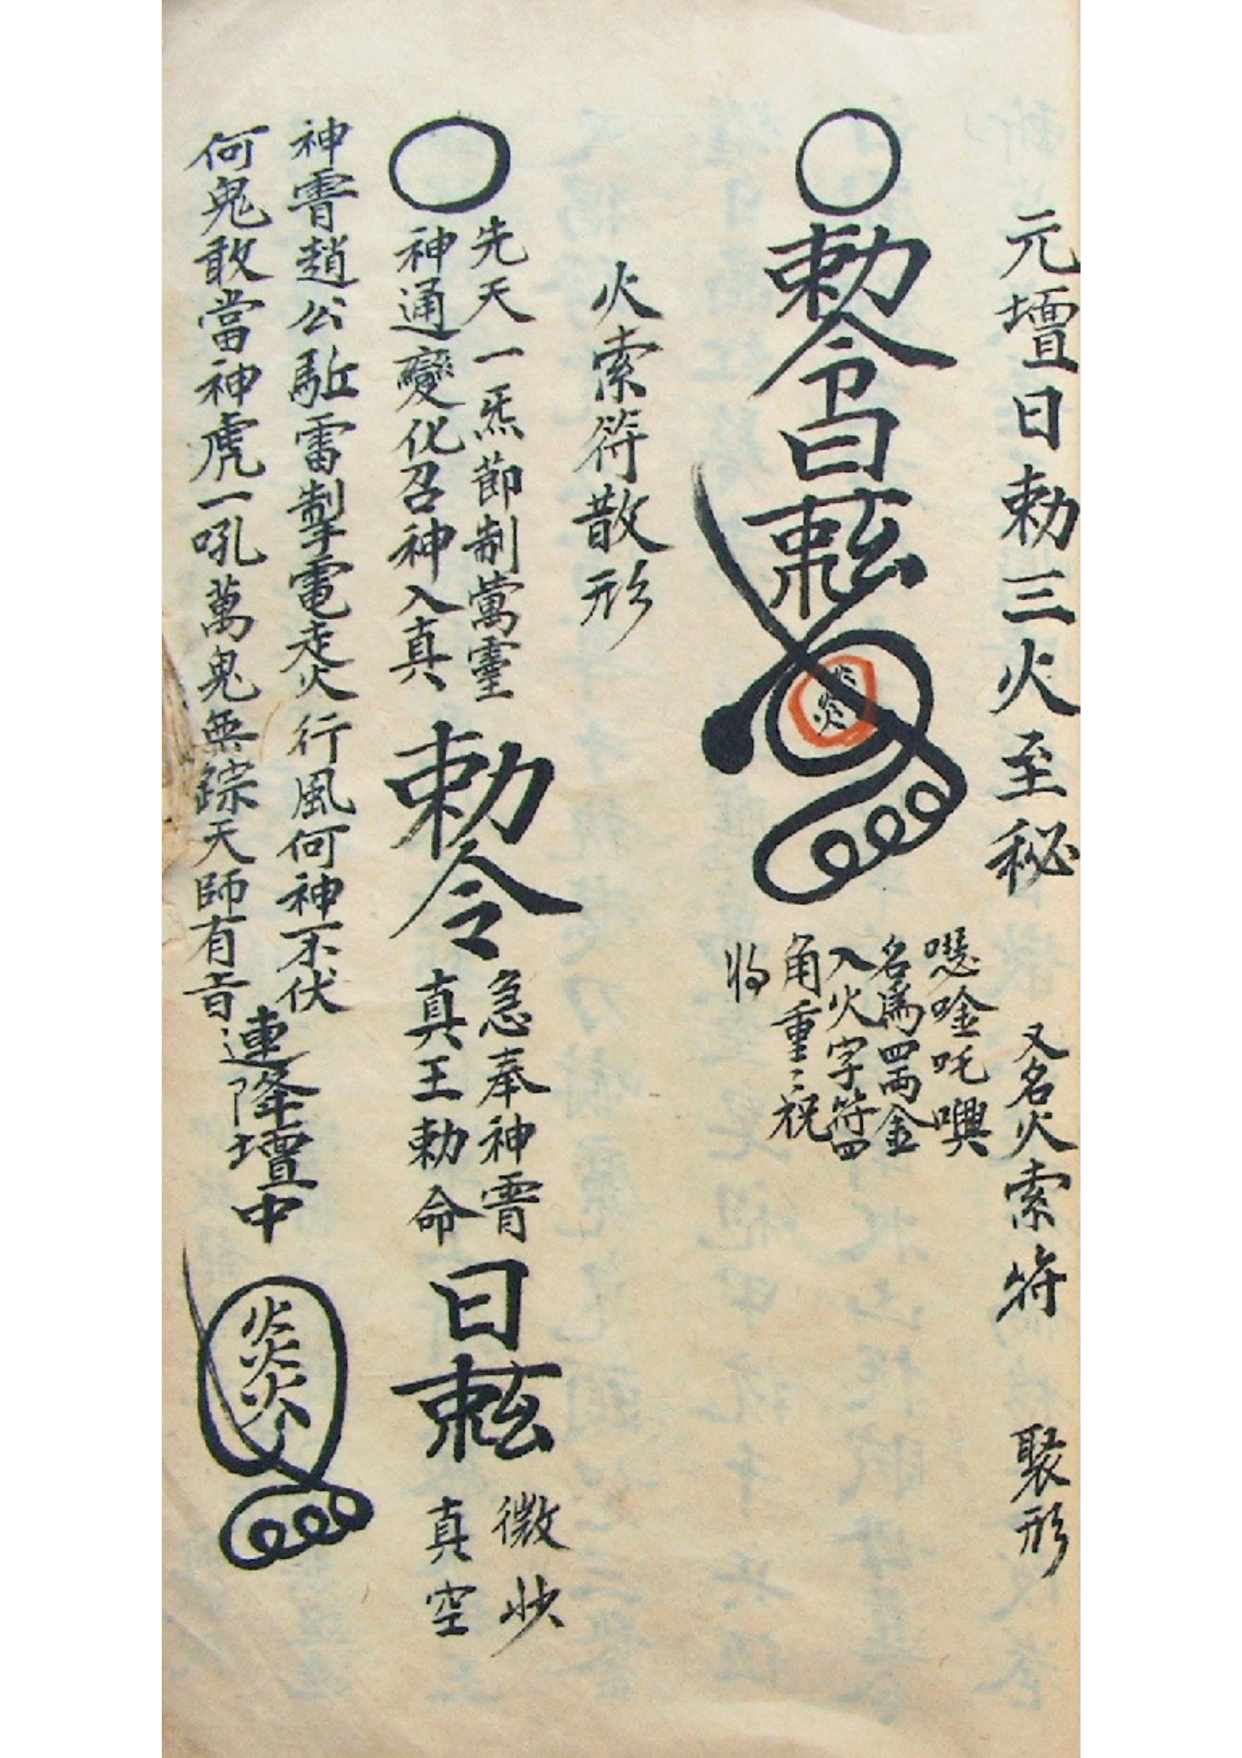 元壇日勅三火至秘
又名火索符
聚形
勅令日
炎火
噁唫吒㗨
名爲四両金
入火字符四
角重〻祝
将
火索符散形
先天一炁節制萬霊
神通變化召神入真
勅令
急奉神霄
真王勅命
日
微妙
真空
神霄趙公駈雷掣電走火行風何神不伏
何鬼敢當神虎一吼萬鬼無踪天師有旨
速降壇中
炎火